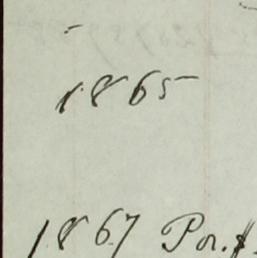 1865
1867 Por.